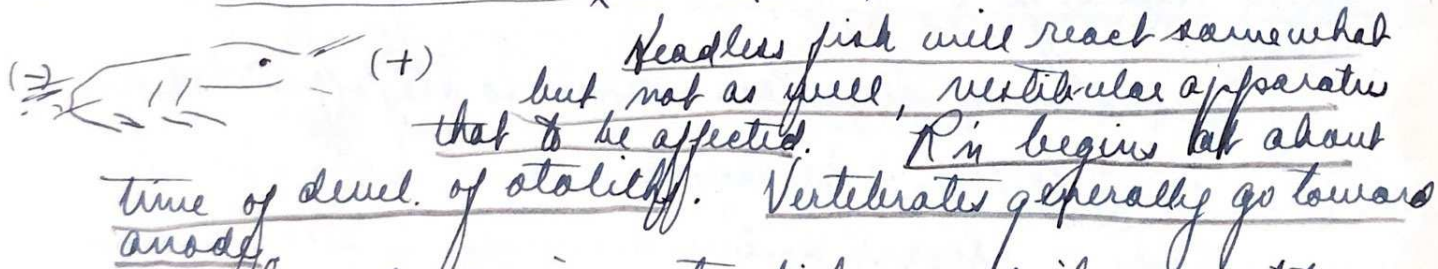 (-) (+) Headless fish will react somewhat
but not as well, vestibular apparatus
that to be affected. R'n begins at about
time of devel. of otoliths. Vertebrates generally go toward
anode.